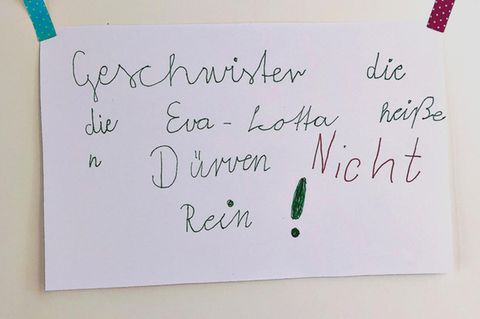 Geschwister die
die Eva-Lotta heiße
n Dürven Nicht
Rein !